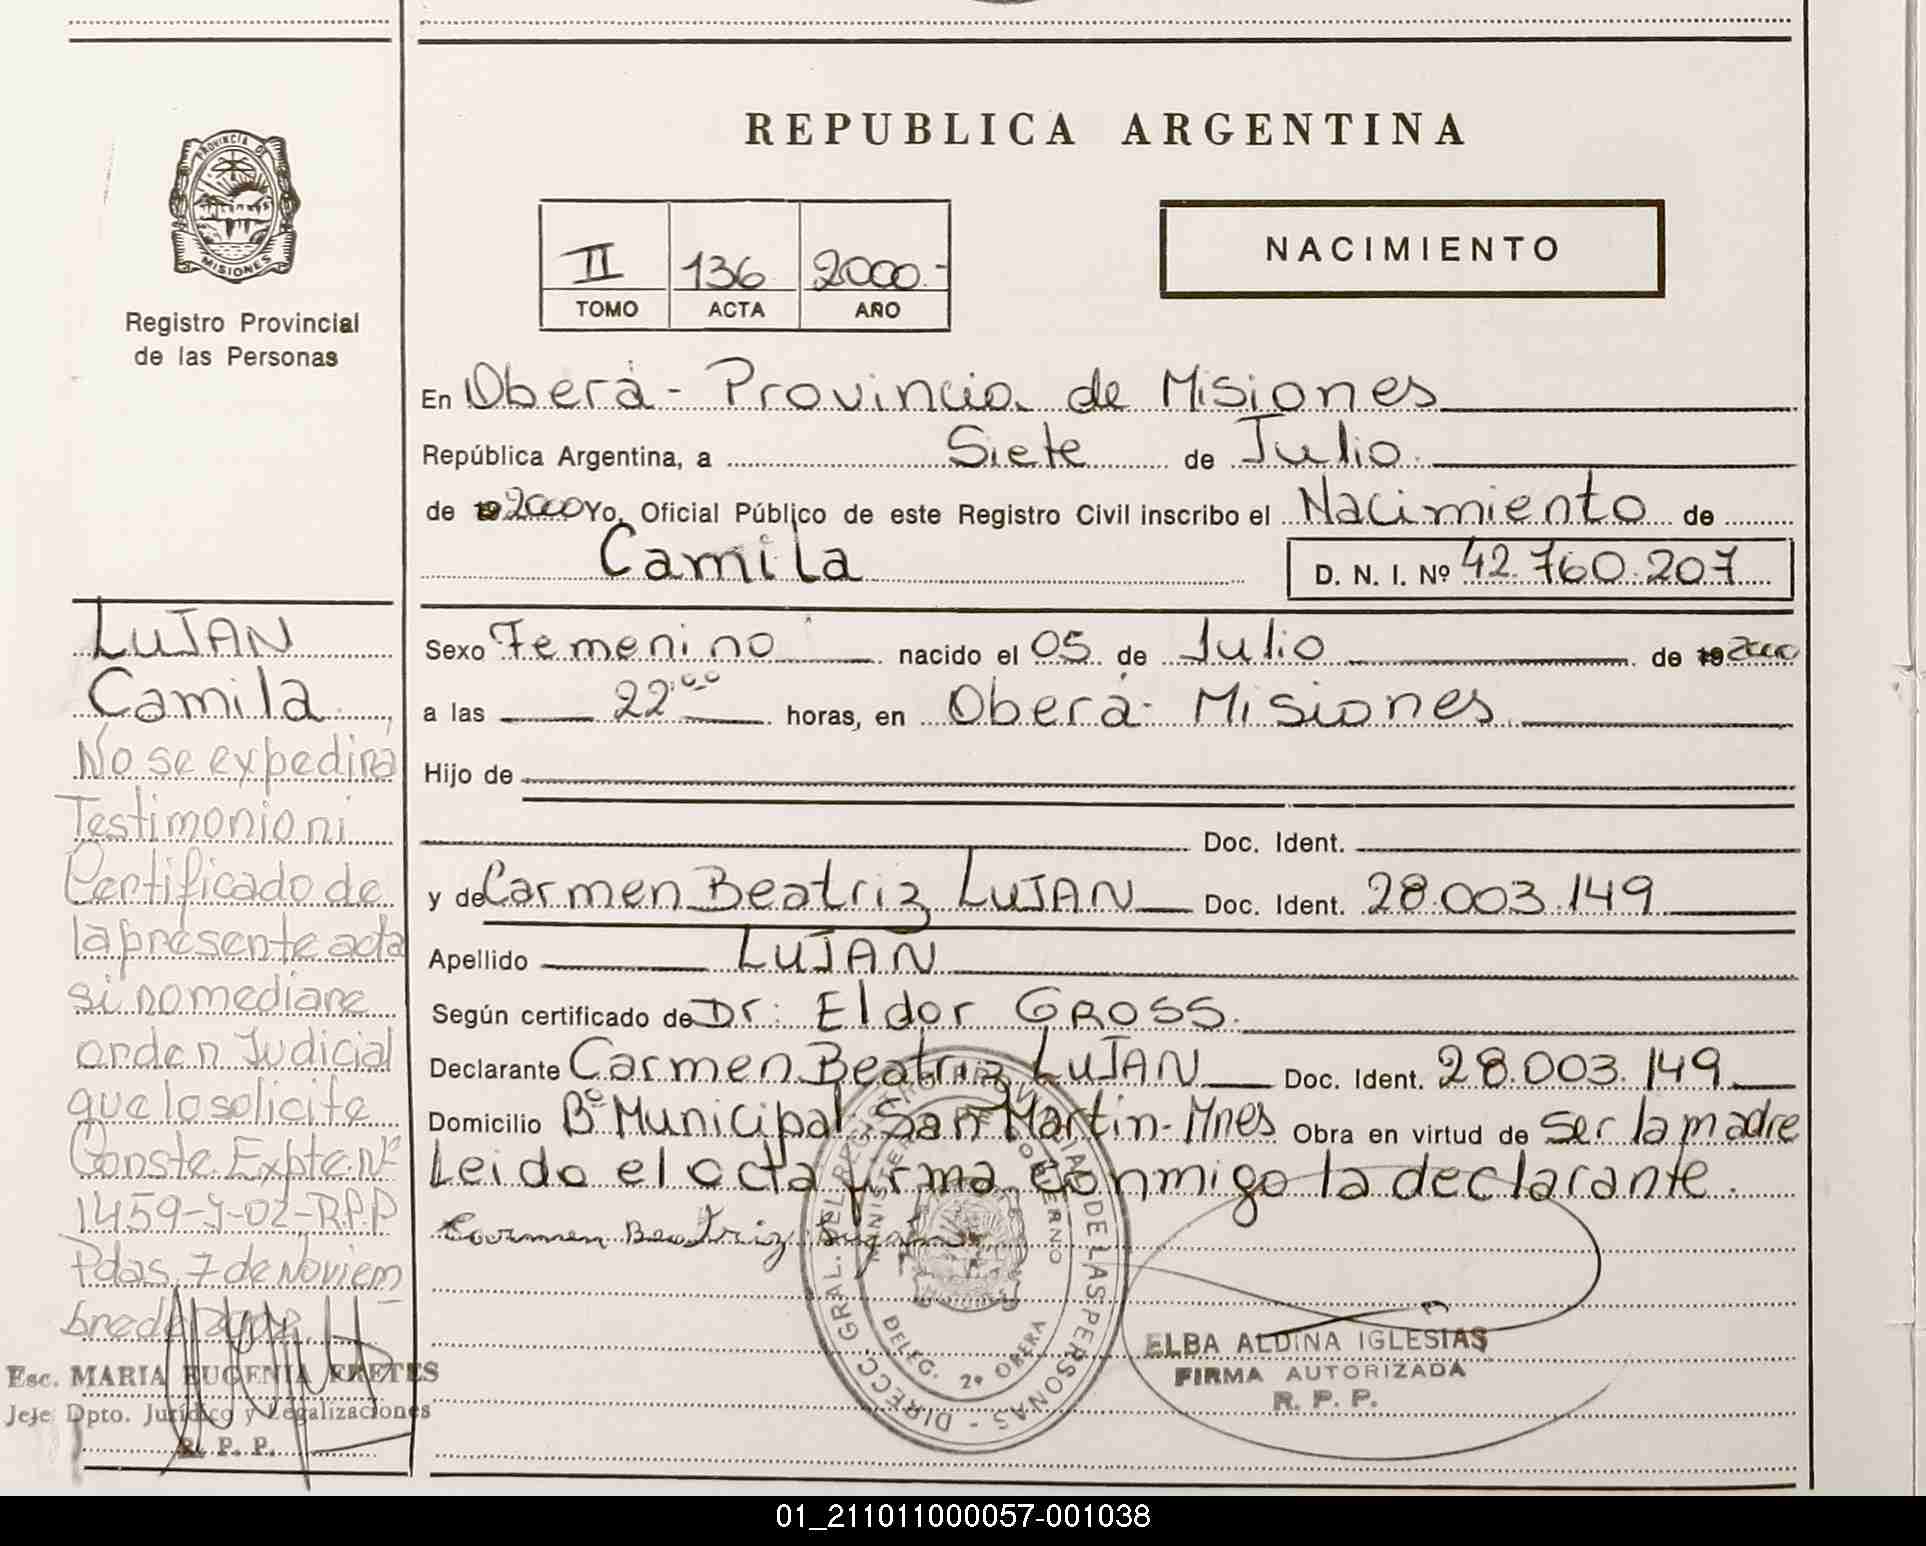 PROVINCIA DE
MISIONES
Registro Provincial
de las Personas
REPUBLICA ARGENTINA
II 136 2000.-
TOMO ACTA AÑO
NACIMIENTO
En Oberá - Provincia de Misiones
República Argentina, a Siete de Julio.
de 19 2000 Yo, Oficial Público de este Registro Civil inscribo el Nacimiento de
Camila D. N. I. Nº 42.760.207
Sexo Femenino nacido el 05 de Julio de 19 2000
a las 22:00 horas, en Oberá - Misiones
Hijo de
Doc. Ident.
y de Carmen Beatriz LUJAN Doc. Ident. 28.003.149
Apellido LUJAN
Según certificado de Dr: Eldor GROSS.
Declarante Carmen Beatriz LUJAN Doc. Ident. 28.003.149
Domicilio Bº Municipal San Martin - Mnes Obra en virtud de ser la madre
Leido el acta firma conmigo la declarante.
Carmen Beatriz Lujan
DIRECC. GRAL. DEL REGISTRO PROVINCIAL DE LAS PERSONAS -
MINISTERIO DE GOBIERNO
DELEG. 2º OBERA
ELBA ALDINA IGLESIAS
FIRMA AUTORIZADA
R. P. P.
LUJAN
Camila
No se expedirá
Testimonio ni
Certificado de
la presente acta
si no mediare
orden Judicial
que lo solicite
Conste. Expte. Nº
1459-J-02-R.P.P
Pdas, 7 de Noviem
bre de 2002.
Esc. MARIA EUGENIA FRETES
Jefe Dpto. Jurídico y Legalizaciones
R. P. P.
01_211011000057-001038